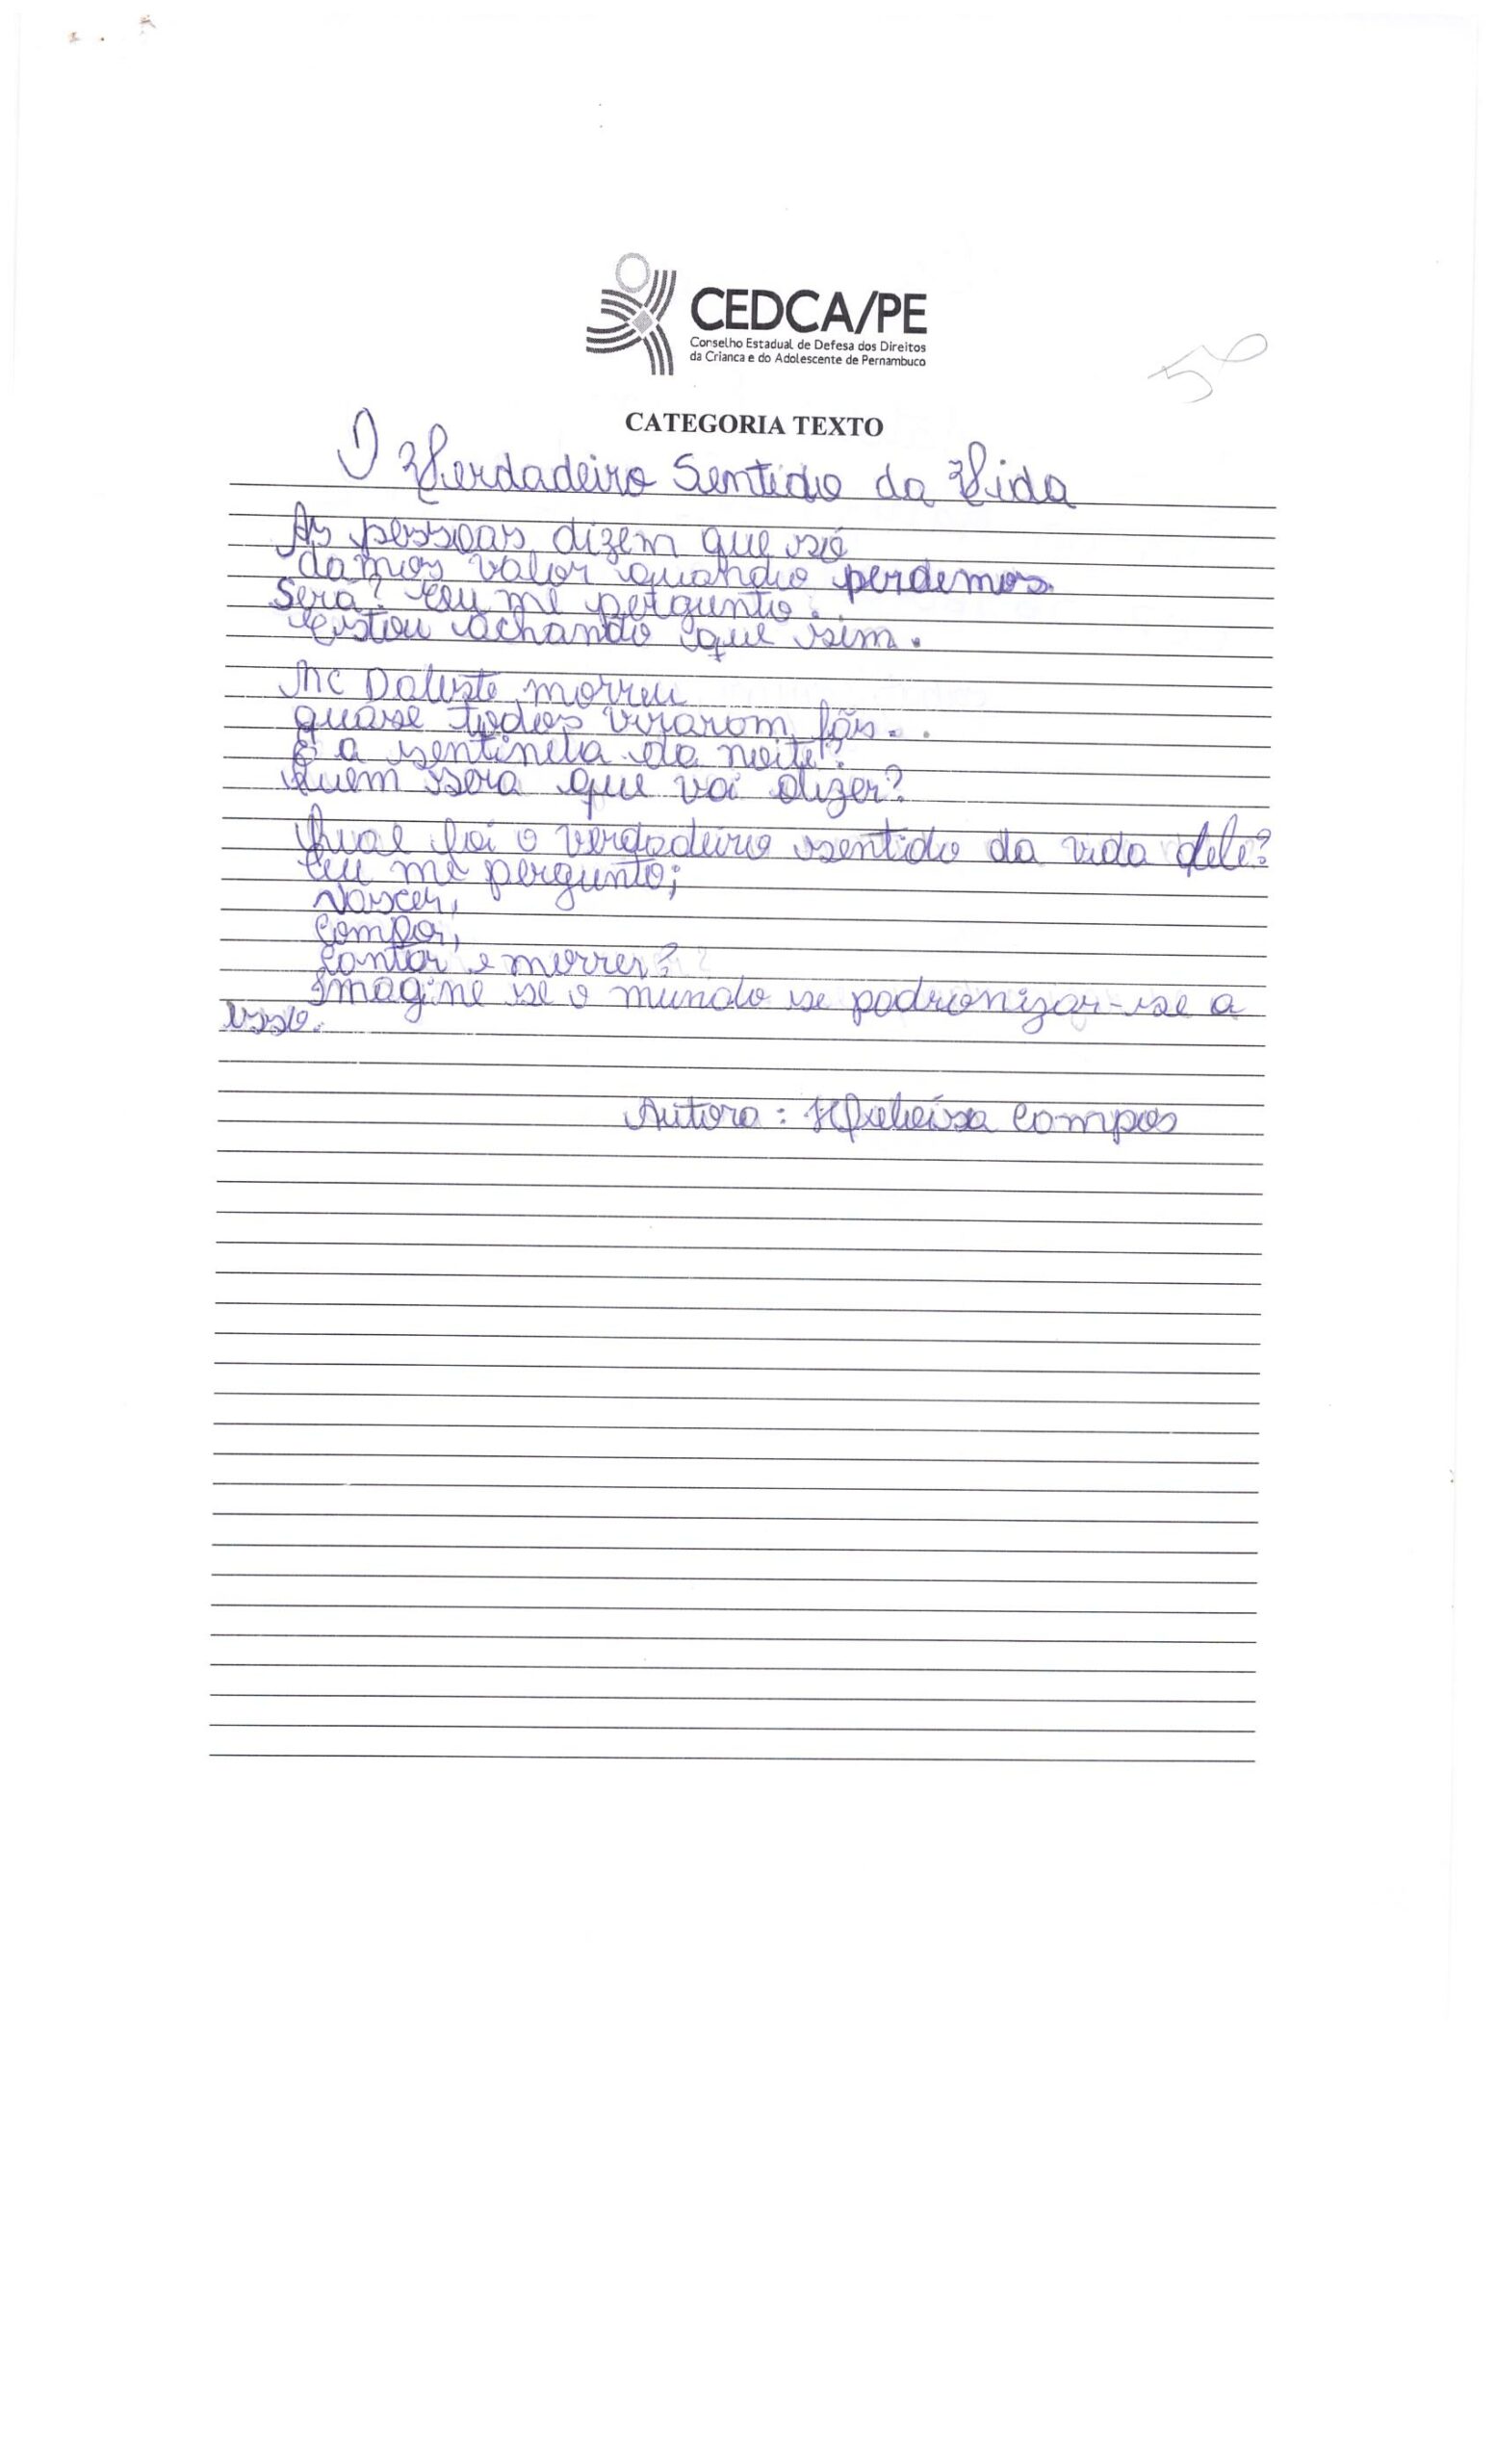 CEDCA/PE
Conselho Estadual de Defesa dos Direitos
da Crianca e do Adolescente de Pernambuco
5º
CATEGORIA TEXTO
O Verdadeiro Sentido da Vida
As pessoas dizem que só
damos valor quando perdemos.
Será? Eu me pergunto.
Estou achando que sim.
Mc Daleste morreu
quase todos viraram fãs..
E a sentinela da noite?
Quem sera que vai dizer?
Qual foi o verdadeiro sentido da vida dele?
Eu me pergunto;
Nascer,
Compor,
Cantar e morrer?
Imagine se o mundo se padronizar-se a
isso.
Autora: Campos